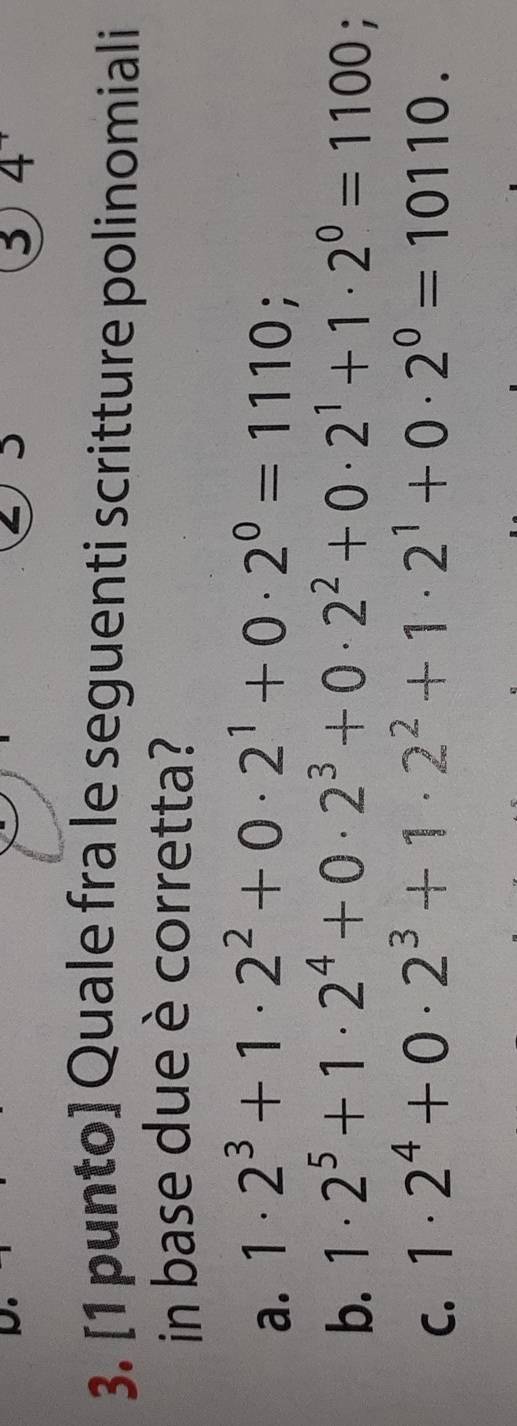 ② 3 ③ 4
3. [1 punto] Quale fra le seguenti scritture polinomiali
in base due è corretta?
a. 1 · 2³ + 1 · 2² + 0 · 2¹ + 0 · 2⁰ = 1110;
b. 1 · 2⁵ + 1 · 2⁴ + 0 · 2³ + 0 · 2² + 0 · 2¹ + 1 · 2⁰ = 1100;
c. 1 · 2⁴ + 0 · 2³ + 1 · 2² + 1 · 2¹ + 0 · 2⁰ = 10110.